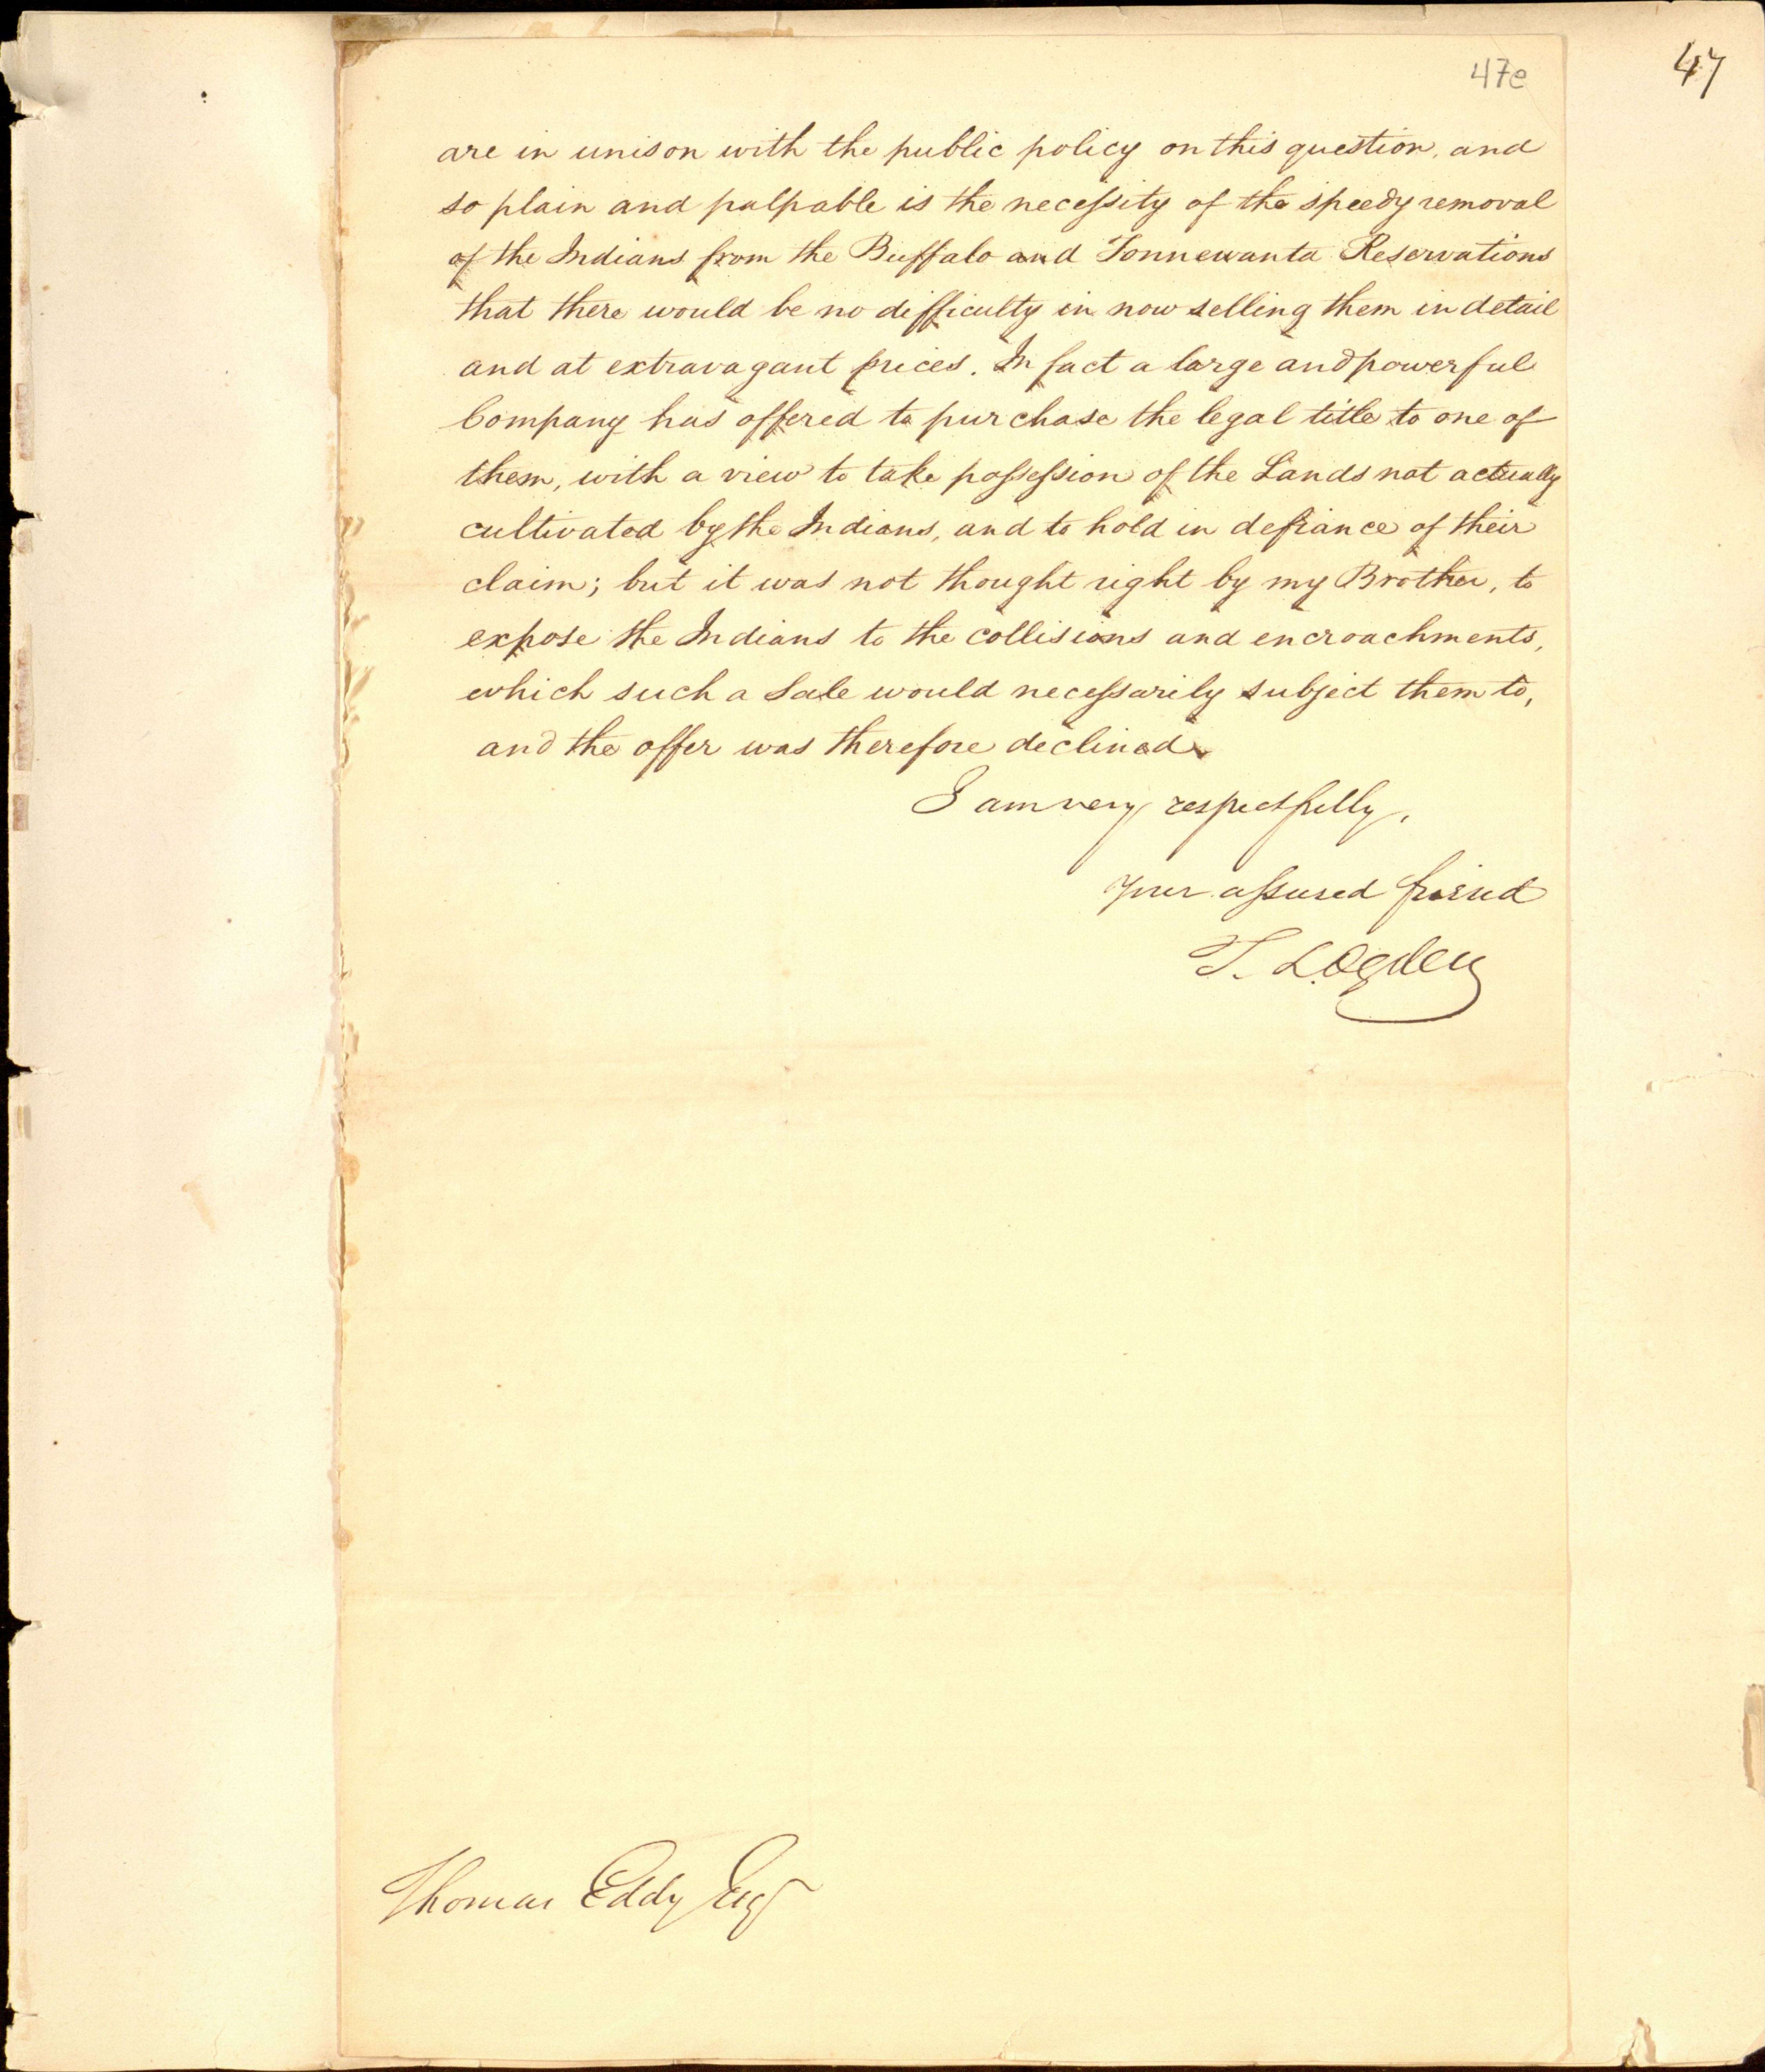 47e
47
are in unison with the public policy on this question, and
so plain and palpable is the necessity of the speedy removal
of the Indians from the Buffalo and Tonnewanta Reservations
that there would be no difficulty in now selling them in detail
and at extravagant prices. In fact a large and powerful
Company has offered to purchase the legal title to one of
them, with a view to take possession of the Lands not actually
cultivated by the Indians, and to hold in defiance of their
claim; but it was not thought right by my Brother, to
expose the Indians to the collisions and encroachments,
which such a Sale would necessarily subject them to,
and the offer was therefore declined.
I am very respectfully,
Your assured friend
T. L. Ogden
Thomas Eddy Esqr